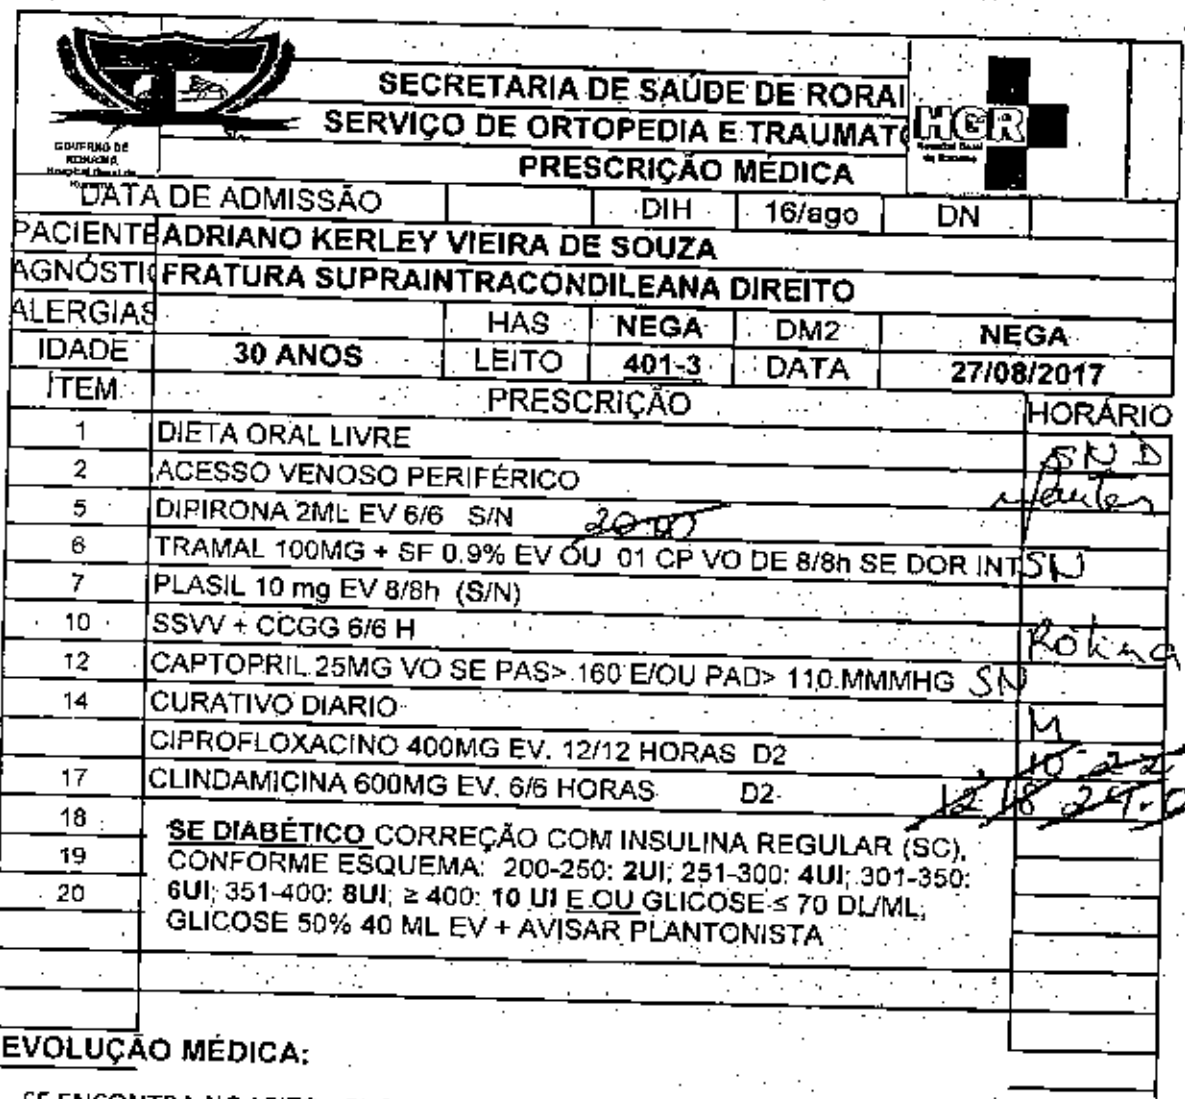 SECRETARIA DE SAÚDE DE RORAI
SERVIÇO DE ORTOPEDIA E TRAUMATO
PRESCRIÇÃO MÉDICA
GOVERNO DE
RORAIMA
Hospital Geral de
HGR
Hospital Geral
de Roraima
DATA DE ADMISSÃO DIH 16/ago DN
PACIENTE ADRIANO KERLEY VIEIRA DE SOUZA
AGNÓSTI FRATURA SUPRAINTRACONDILEANA DIREITO
ALERGIAS HAS NEGA DM2 NEGA
IDADE 30 ANOS LEITO 401-3 DATA 27/08/2017
ITEM PRESCRIÇÃO HORÁRIO
1 DIETA ORAL LIVRE SND
2 ACESSO VENOSO PERIFÉRICO
5 DIPIRONA 2ML EV 6/6 S/N 20:00
6 TRAMAL 100MG + SF 0.9% EV OU 01 CP VO DE 8/8h SE DOR INT SN
7 PLASIL 10 mg EV 8/8h (S/N)
10 SSVV + CCGG 6/6 H Rotina
12 CAPTOPRIL 25MG VO SE PAS> 160 E/OU PAD> 110 MMMHG SN
14 CURATIVO DIARIO M
CIPROFLOXACINO 400MG EV. 12/12 HORAS D2 10 22
17 CLINDAMICINA 600MG EV. 6/6 HORAS D2 12 18 24
18 SE DIABÉTICO CORREÇÃO COM INSULINA REGULAR (SC),
19 CONFORME ESQUEMA: 200-250: 2UI; 251-300: 4UI; 301-350:
20 6UI; 351-400: 8UI; ≥ 400: 10 UI E OU GLICOSE ≤ 70 DL/ML,
GLICOSE 50% 40 ML EV + AVISAR PLANTONISTA
EVOLUÇÃO MÉDICA:
SE ENCONTRA NO